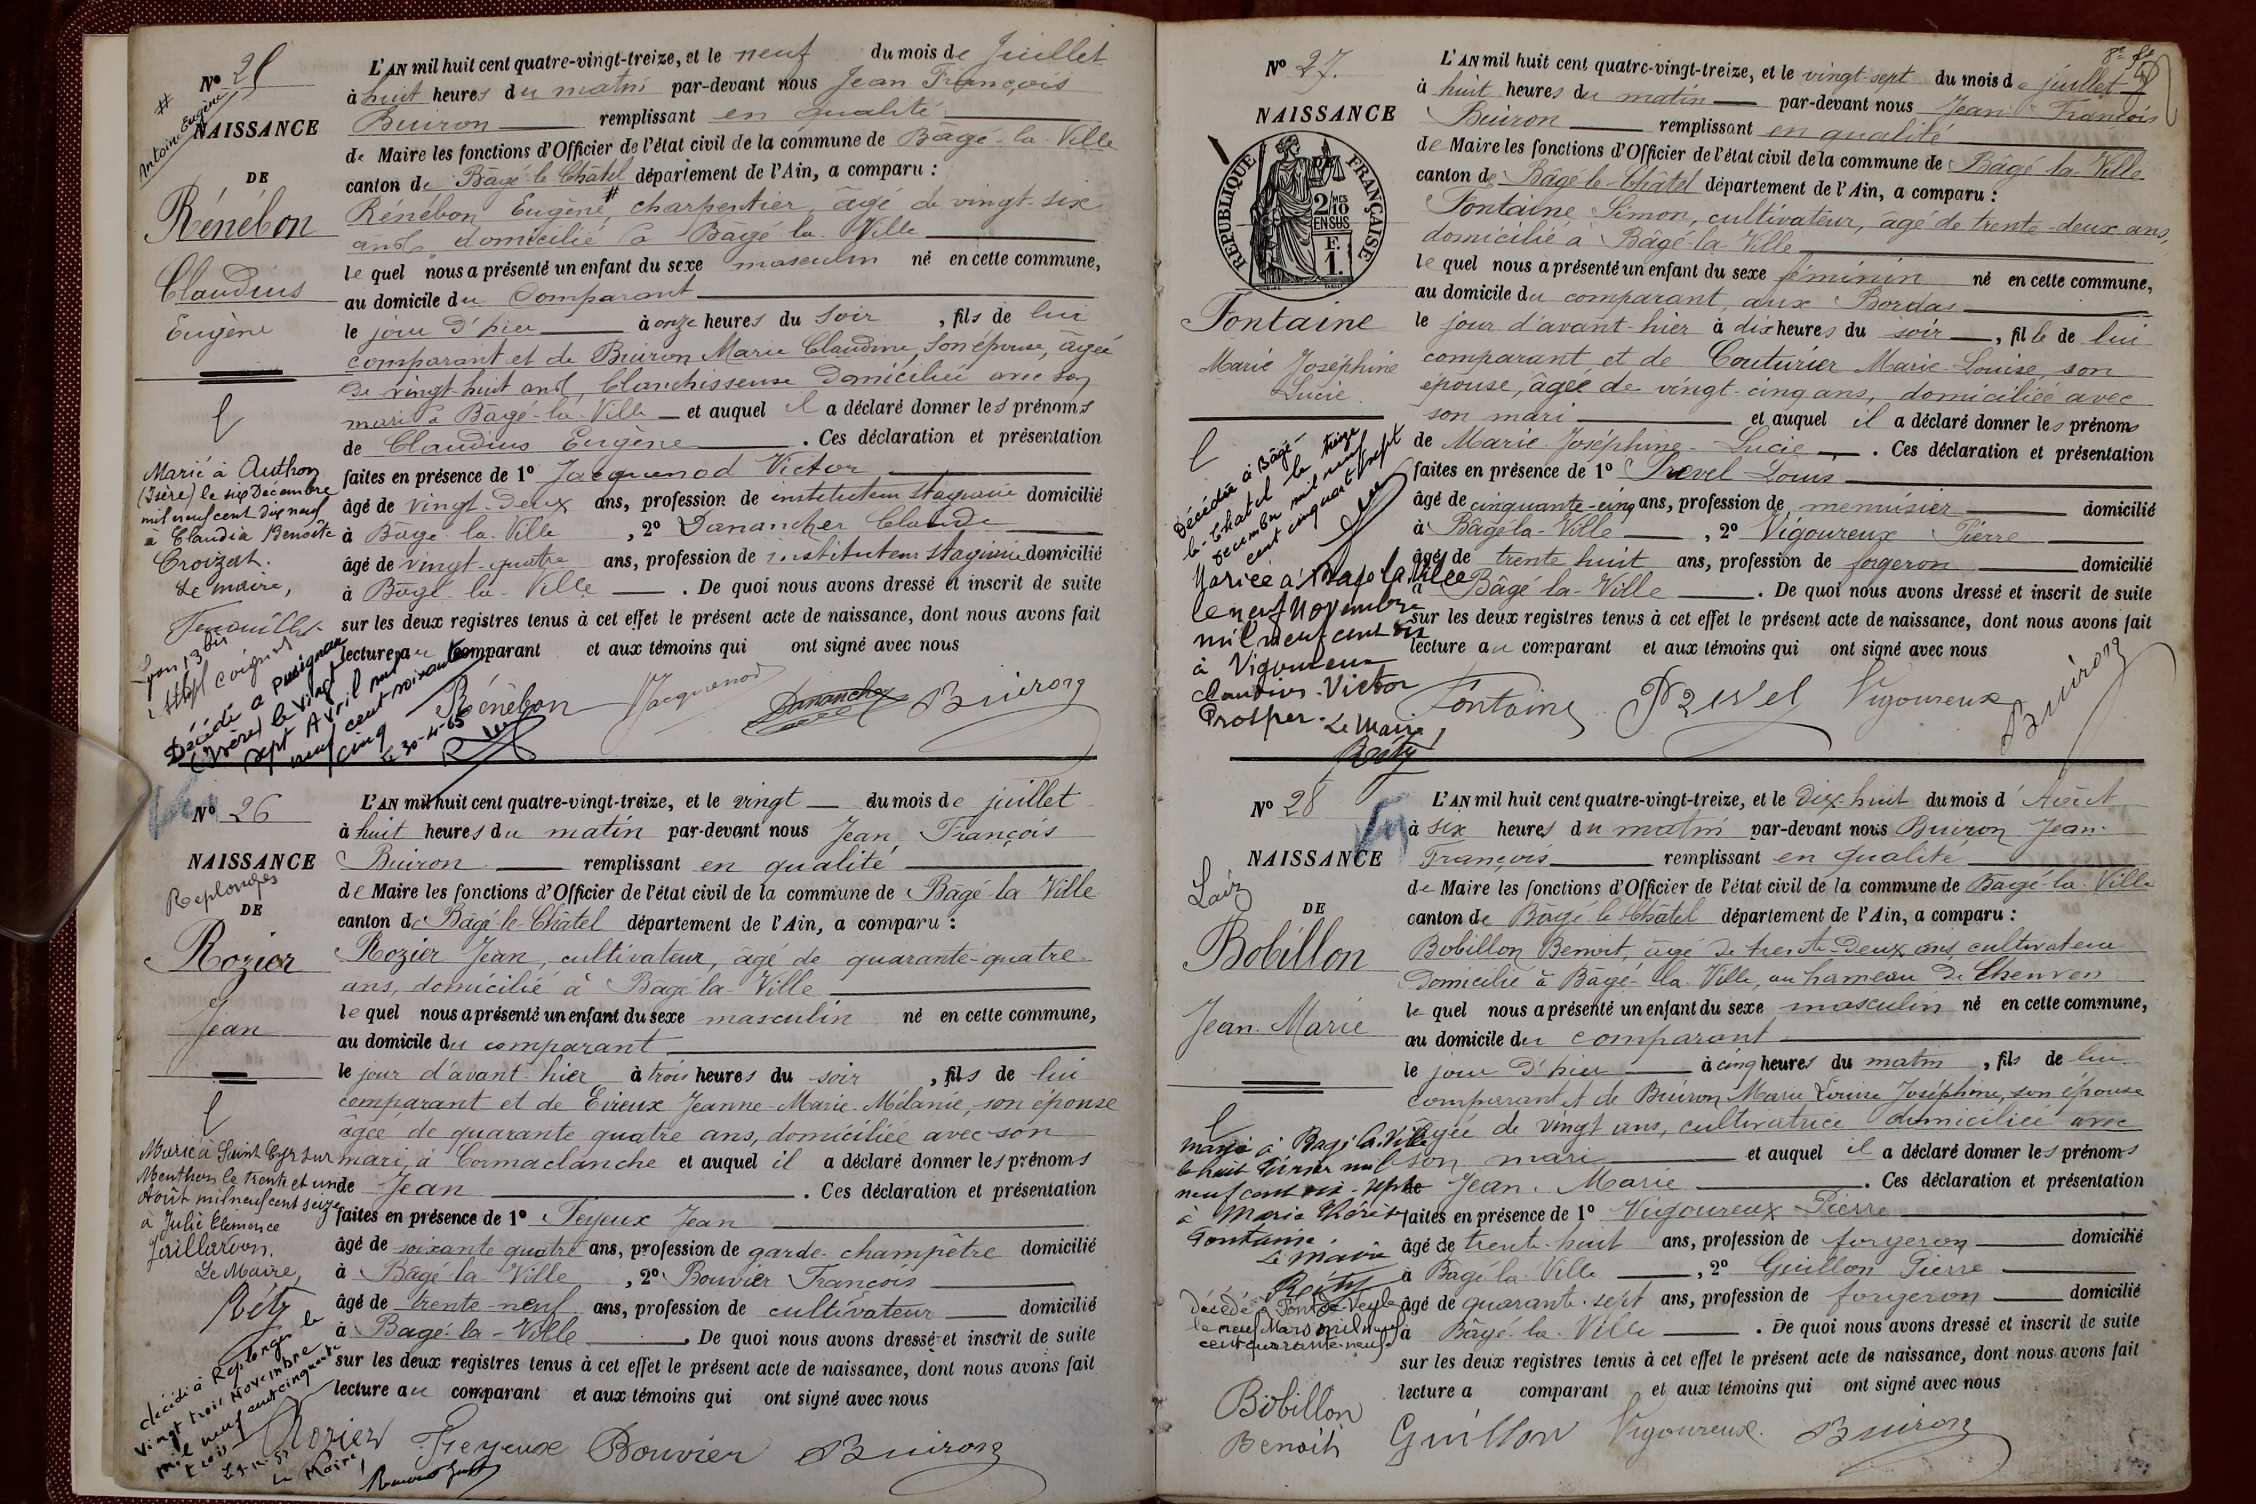 N° 25
NAISSANCE
Antoine Eugène
DE
Rénébon
Claudius
Eugène
Marié à Authon
(Isère) le six Décembre
mil neuf cent dix neuf
à Claudia Benoîte
Croizat.
Le maire,
Décédé à Pusignan
(Isère) le vingt
sept Avril mil
neuf cent soixante
cinq
Le 30-4-65
L'AN mil huit cent quatre-vingt-treize, et le neuf du mois de Juillet
à huit heures du matin par-devant nous Jean François
Buiron remplissant en qualité
de Maire les fonctions d'Officier de l'état civil de la commune de Bâgé-la-Ville
canton de Bâgé-le-Châtel département de l'Ain, a comparu :
Rénébon Eugène #, charpentier, âgé de vingt-six
ans, domicilié à Bâgé-la-Ville
le quel nous a présenté un enfant du sexe masculin né en cette commune,
au domicile du Comparant
le jour d'hier à onze heures du soir, fils de lui
comparant et de Buiron Marie Claudine, son épouse, âgée
de vingt-huit ans, blanchisseuse domiciliée avec son
mari à Bâgé-la-Ville et auquel il a déclaré donner les prénoms
de Claudius Eugène. Ces déclaration et présentation
faites en présence de 1° Jacquenod Victor
âgé de vingt-deux ans, profession de instituteur stagiaire domicilié
à Bâgé-la-Ville, 2° Danancher Claude
âgé de vingt-quatre ans, profession de instituteur stagiaire domicilié
à Bâgé-la-Ville. De quoi nous avons dressé et inscrit de suite
sur les deux registres tenus à cet effet le présent acte de naissance, dont nous avons fait
lecture au comparant et aux témoins qui ont signé avec nous
Rénébon Jacquenod Danancher Buiron
N° 26
NAISSANCE
Replonges
DE
Rozier
Jean
Marié à Saint Cyr sur
Menthon le trente et un
Août mil neuf cent seize
à Julie Clémence
Jaillardon.
Le Maire,
Réty
décédé à Replonges le
vingt trois Novembre
mil neuf cent cinquante
trois
Le Maire,
L'AN mil huit cent quatre-vingt-treize, et le vingt du mois de juillet
à huit heures du matin par-devant nous Jean François
Buiron remplissant en qualité
de Maire les fonctions d'Officier de l'état civil de la commune de Bâgé-la-Ville
canton de Bâgé-le-Châtel département de l'Ain, a comparu :
Rozier Jean, cultivateur, âgé de quarante-quatre
ans, domicilié à Bâgé-la-Ville
le quel nous a présenté un enfant du sexe masculin né en cette commune,
au domicile du comparant
le jour d'avant-hier à trois heures du soir, fils de lui
comparant et de Eireux Jeanne-Marie-Mélanie, son épouse
âgée de quarante quatre ans, domiciliée avec son
mari, à Cormaclanche et auquel il a déclaré donner les prénoms
de Jean. Ces déclaration et présentation
faites en présence de 1° Feyeux Jean
âgé de soixante quatre ans, profession de garde-champêtre domicilié
à Bâgé-la-Ville, 2° Bouvier François
âgé de trente-neuf ans, profession de cultivateur domicilié
à Bâgé-la-Ville. De quoi nous avons dressé et inscrit de suite
sur les deux registres tenus à cet effet le présent acte de naissance, dont nous avons fait
lecture au comparant et aux témoins qui ont signé avec nous
Rozier Feyeux Bouvier Buiron
N° 27.
NAISSANCE
DE
RÉPUBLIQUE FRANÇAISE
2/10 MES
EN SUS
1 F.
Fontaine
Marie Joséphine
Lucie.
Décédée à Bâgé-
le-Chatel le treize
Décembre mil neuf
cent cinquante sept
Mariée à Bage la Ville
le neuf Novembre
mil neuf cent dix
à Vigoureux
Claudius-Victor
Prosper.
Le Maire,
Réty
8e ft
L'AN mil huit cent quatre-vingt-treize, et le vingt-sept du mois de juillet
à huit heures du matin par-devant nous Jean François
Buiron remplissant en qualité
de Maire les fonctions d'Officier de l'état civil de la commune de Bâgé-la-Ville
canton de Bâgé-le-Châtel département de l'Ain, a comparu :
Fontaine Simon, cultivateur, âgé de trente-deux ans,
domicilié à Bâgé-la-Ville
le quel nous a présenté un enfant du sexe féminin né en cette commune,
au domicile du comparant, aux Bordas
le jour d'avant-hier à dix heures du soir, fille de lui
comparant, et de Couturier Marie-Louise, son
épouse, âgée de vingt-cinq ans, domiciliée avec
son mari et auquel il a déclaré donner les prénoms
de Marie-Joséphine-Lucie. Ces déclaration et présentation
faites en présence de 1° Prevel Louis
âgé de cinquante-cinq ans, profession de menuisier domicilié
à Bâgé-la-Ville, 2° Vigoureux Pierre
âgé de trente huit ans, profession de forgeron domicilié
à Bâgé-la-Ville. De quoi nous avons dressé et inscrit de suite
sur les deux registres tenus à cet effet le présent acte de naissance, dont nous avons fait
lecture au comparant et aux témoins qui ont signé avec nous
Fontaine Prevel Vigoureux Buiron
N° 28
NAISSANCE
Laiz
DE
Bobillon
Jean-Marie
Marié à Bagé la Ville
le huit février mil
neuf cent dix-sept
à Marie
Fontaine
Le Maire
Réty
décédé à Pont de Veyle
le neuf Mars mil neuf
cent quarante-neuf
L'AN mil huit cent quatre-vingt-treize, et le dix-huit du mois d'Août
à six heures du matin par-devant nous Buiron Jean-
François remplissant en qualité
de Maire les fonctions d'Officier de l'état civil de la commune de Bâgé-la-Ville
canton de Bâgé-le-Châtel département de l'Ain, a comparu :
Bobillon Benoit, âgé de trente-deux ans, cultivateur
domicilié à Bâgé-la-Ville, au hameau de
le quel nous a présenté un enfant du sexe masculin né en cette commune,
au domicile du comparant
le jour d'hier à cinq heures du matin, fils de lui
comparant et de Buiron Marie Louise Joséphine, son épouse
âgée de vingt ans, cultivatrice domiciliée avec
son mari et auquel il a déclaré donner les prénoms
de Jean-Marie. Ces déclaration et présentation
faites en présence de 1° Vigoureux Pierre
âgé de trente-huit ans, profession de forgeron domicilié
à Bâgé-la-Ville, 2° Guillon Pierre
âgé de quarante-sept ans, profession de forgeron domicilié
à Bâgé-la-Ville. De quoi nous avons dressé et inscrit de suite
sur les deux registres tenus à cet effet le présent acte de naissance, dont nous avons fait
lecture a comparant et aux témoins qui ont signé avec nous
Bobillon
Benoit Guillon Vigoureux Buiron